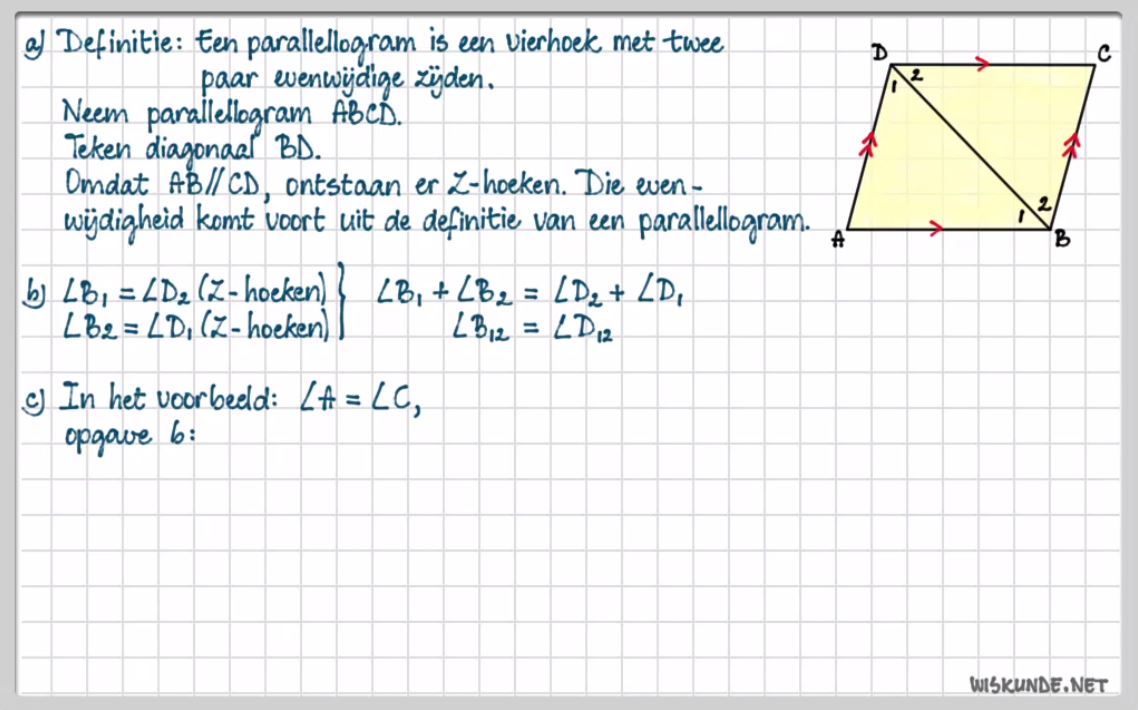 a) Definitie: Een parallellogram is een vierhoek met twee
paar evenwijdige zijden.
Neem parallellogram ABCD.
Teken diagonaal BD.
Omdat AB//CD, ontstaan er Z-hoeken. Die even-
wijdigheid komt voort uit de definitie van een parallellogram.
D C
1 2
1 2
A B
b) ∠B₁ = ∠D₂ (Z-hoeken) } ∠B₁ + ∠B₂ = ∠D₂ + ∠D₁
∠B₂ = ∠D₁ (Z-hoeken) ∠B₁₂ = ∠D₁₂
c) In het voorbeeld: ∠A = ∠C,
opgave b:
WISKUNDE.NET